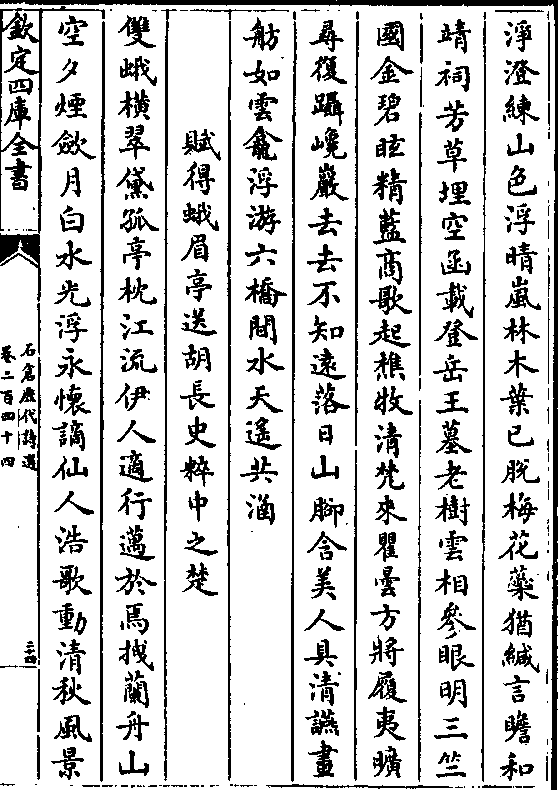 淨澄練山色浮晴嵐林木葉已脫梅花藥猶緘言瞻和
靖祠芳草埋空函載登岳王墓老樹雲相參眼明三竺
國金碧眩精藍商歌起樵牧清梵來瞿曇方將履夷曠
尋復躡巉巖去去不知遠落日山腳含美人具清讌畫
舫如雲龕浮游六橋間水天遙共涵
賦得蛾眉亭送胡長史粹中之楚
雙蛾橫翠黛孤亭枕江流伊人適行邁於焉拽蘭舟山
空夕煙斂月白水光浮永懷謫仙人浩歌動清秋風景
欽定四庫全書
石倉歷代詩選
卷二百四十四
二十四